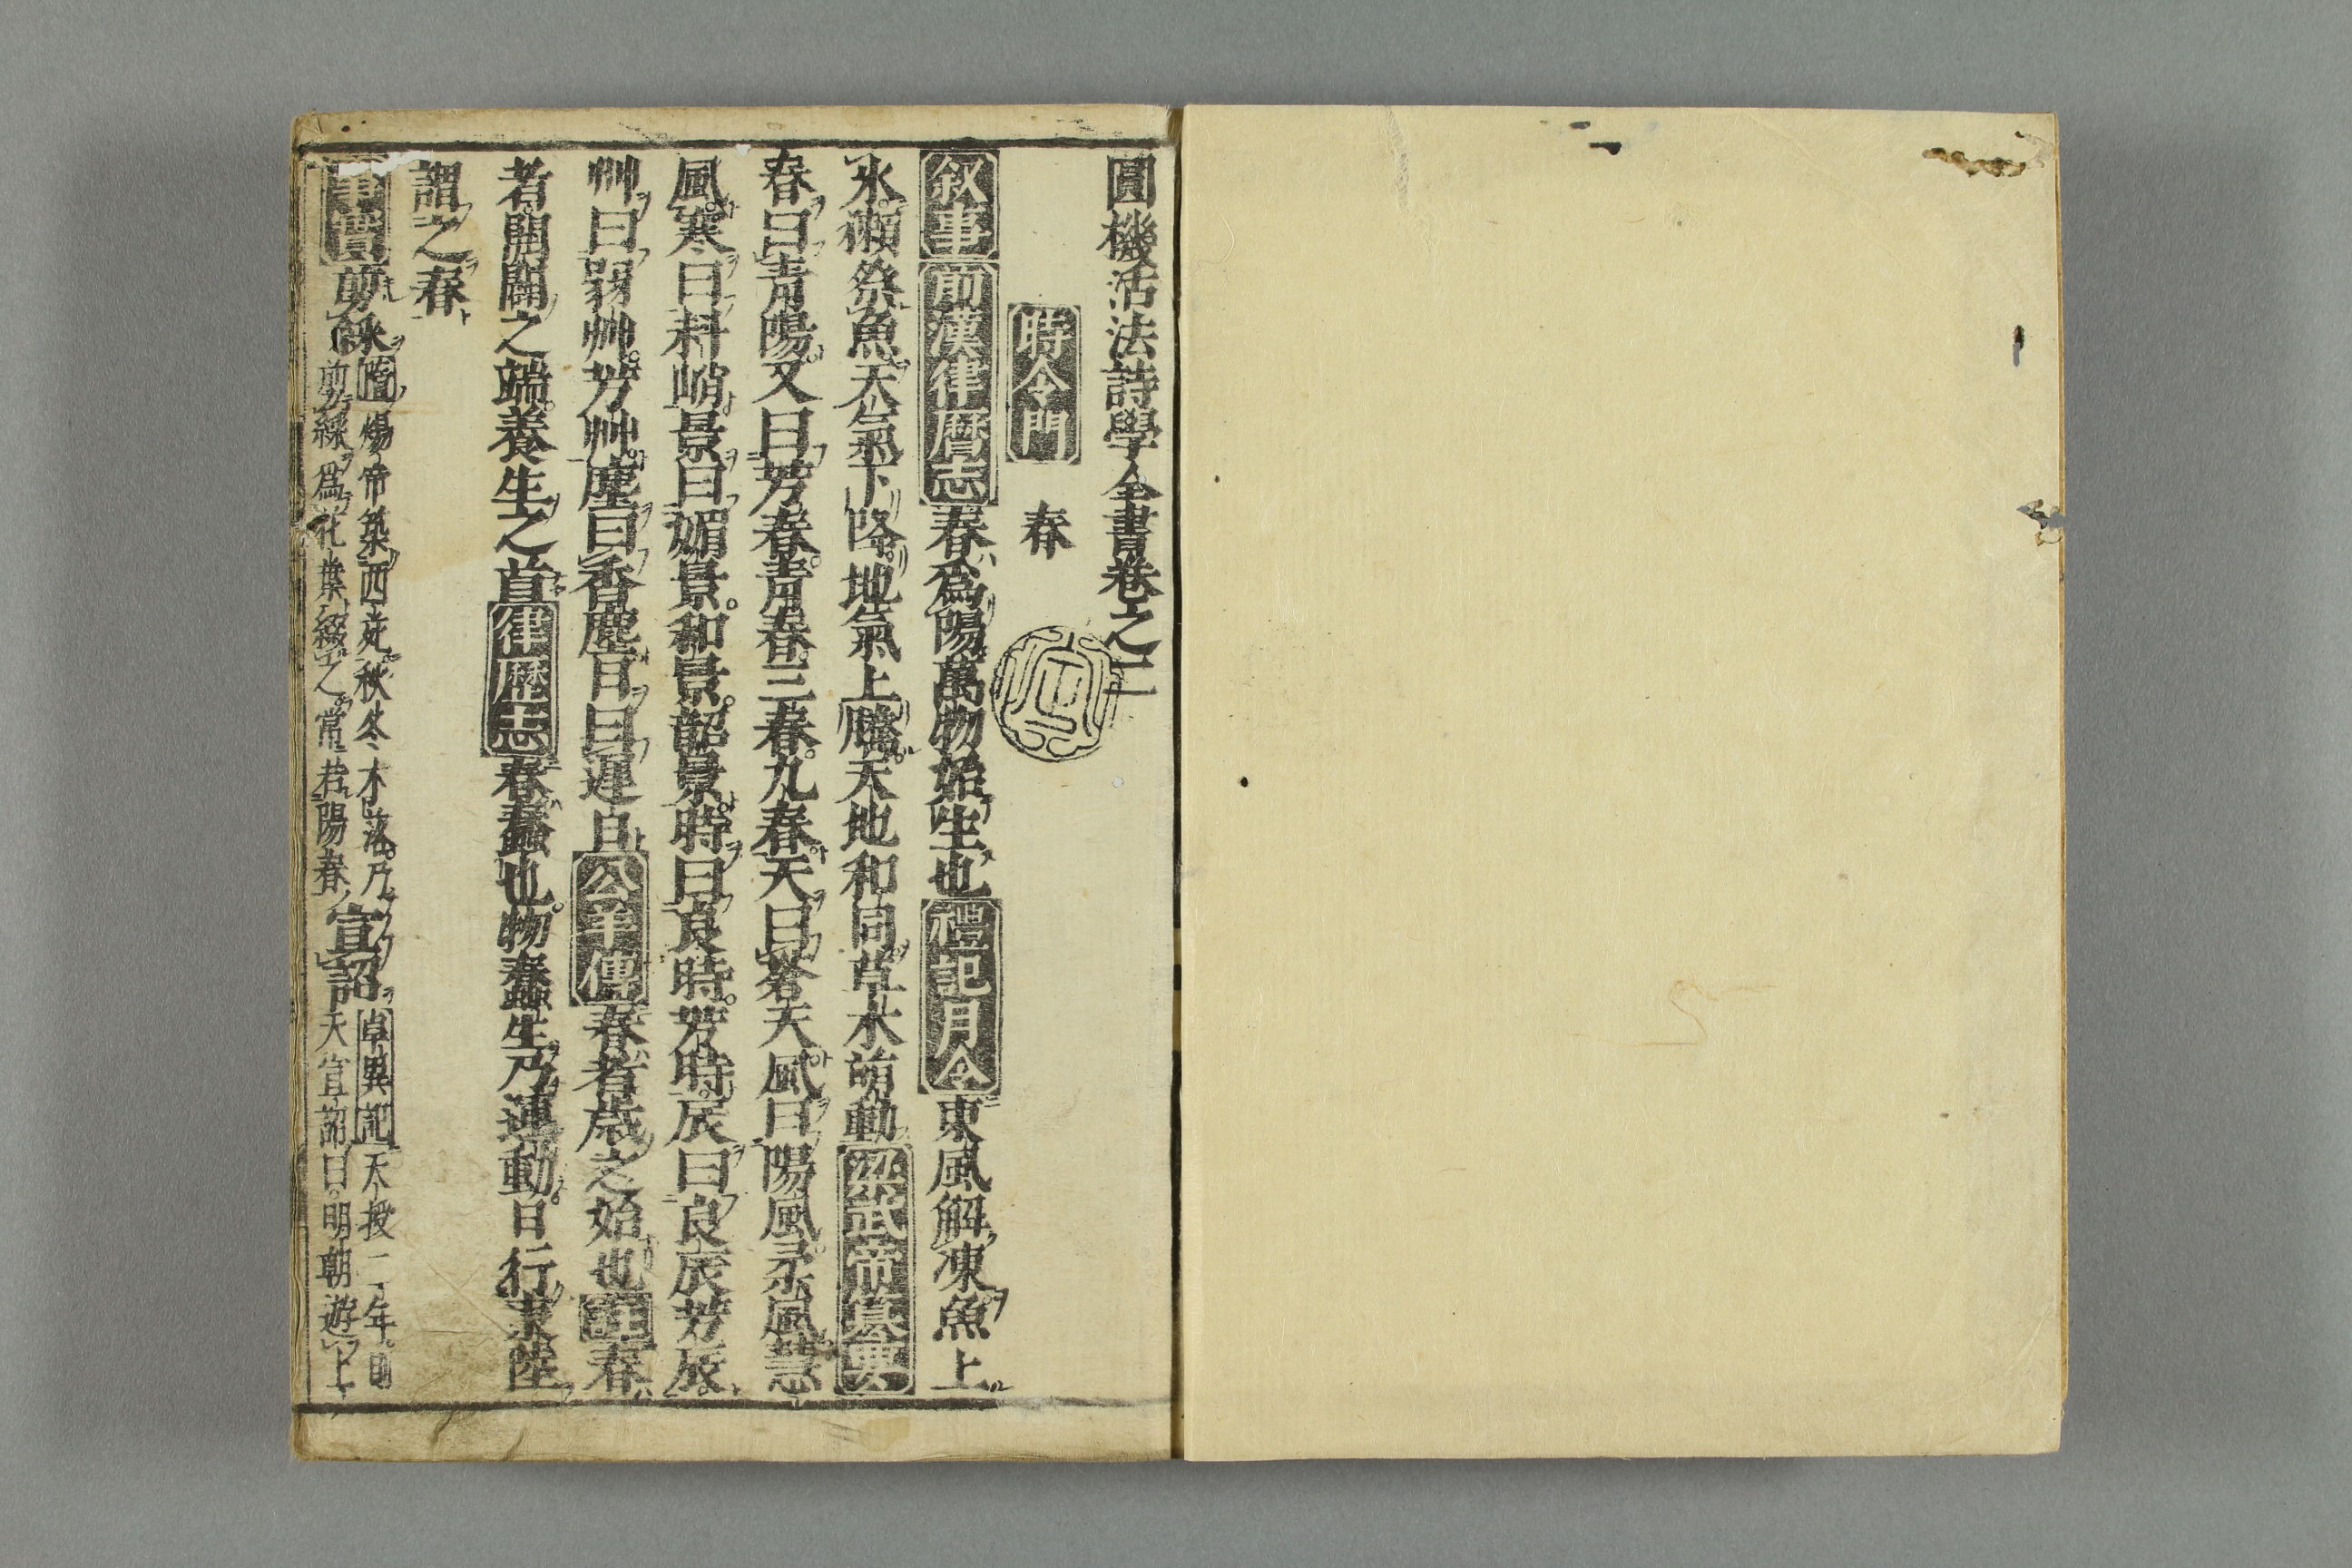 圓機活法詩學全書卷之二
時令門 春
叙事 前漢律曆志 春爲陽萬物始生也 禮記月令 東風解凍魚上
氷獺祭魚天氣下降地氣上騰天地和同草木萌動 梁武帝纂要
春曰青陽又曰芳春青春三春九春天曰蒼天風曰陽風柔風慧
風寒曰料峭景曰媚景和景韶景時曰良時芳時辰曰良辰芳辰
艸曰弱艸芳艸塵曰香塵日曰遲日 公羊傳 春者歳之始也 註 春
者開闢之端養生之首 律歴志 春蠢也物蠢生乃運動日行東陸
謂之春
事實 剪綵 隋煬帝築西苑秋冬木落乃
剪綵爲花葉綴之常若陽春 宣詔 卓異記 天授二年
天宣詔曰明朝遊上